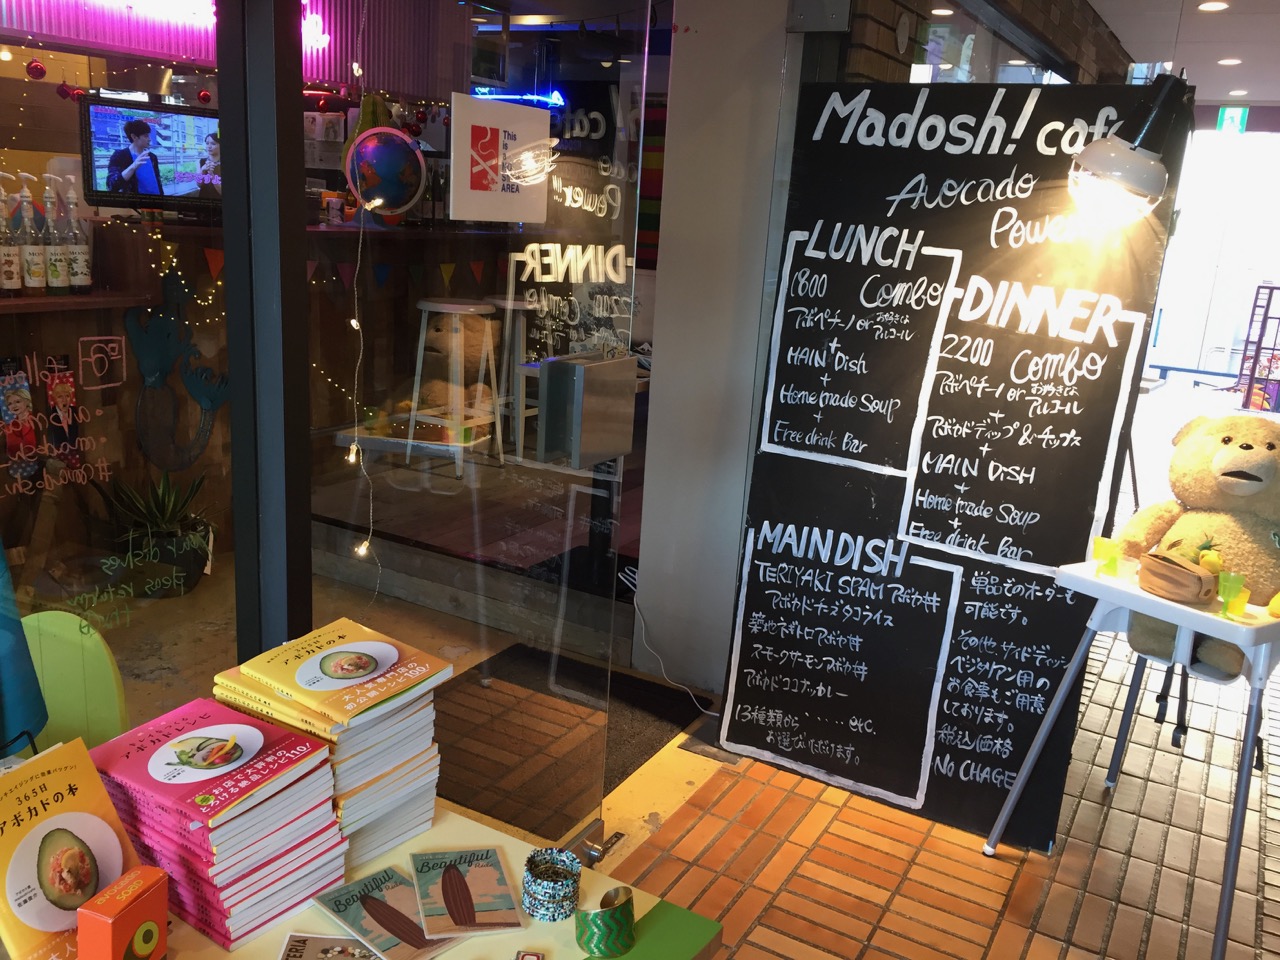 Madosh! cafe
Avocado
Power
LUNCH
1800 Combo
アボペチーノ or お好きな
アルコール
+
MAIN Dish
+
Home made Soup
+
Free drink Bar
DINNER
2200 Combo
アボペチーノ or お好きな
アルコール
+
アボカドディップ&チップス
+
MAIN DISH
+
Home made Soup
+
Free drink Bar
MAIN DISH
TERIYAKI SPAM アボカ丼
アボカドチーズタコライス
築地ネギトロアボカ丼
スモークサーモンアボカ丼
アボカドココナッカレー
13種類から・・・・・・etc.
お選びいただけます。
単品でのオーダーも
可能です。
その他、サイドディッシュ
ベジタリアン用の
お食事もご用意
しております。
税込価格
NO CHAGE
This
is
AREA
DINNER
2200 Combo
365日
アボカドの本
大人気専門店の
初公開レシピ100!
アボカドレシピ
お店で大評判の
とろける絶品レシピ110!
365日
アボカドの本
avocado
SOAP
Beautiful
Beautiful